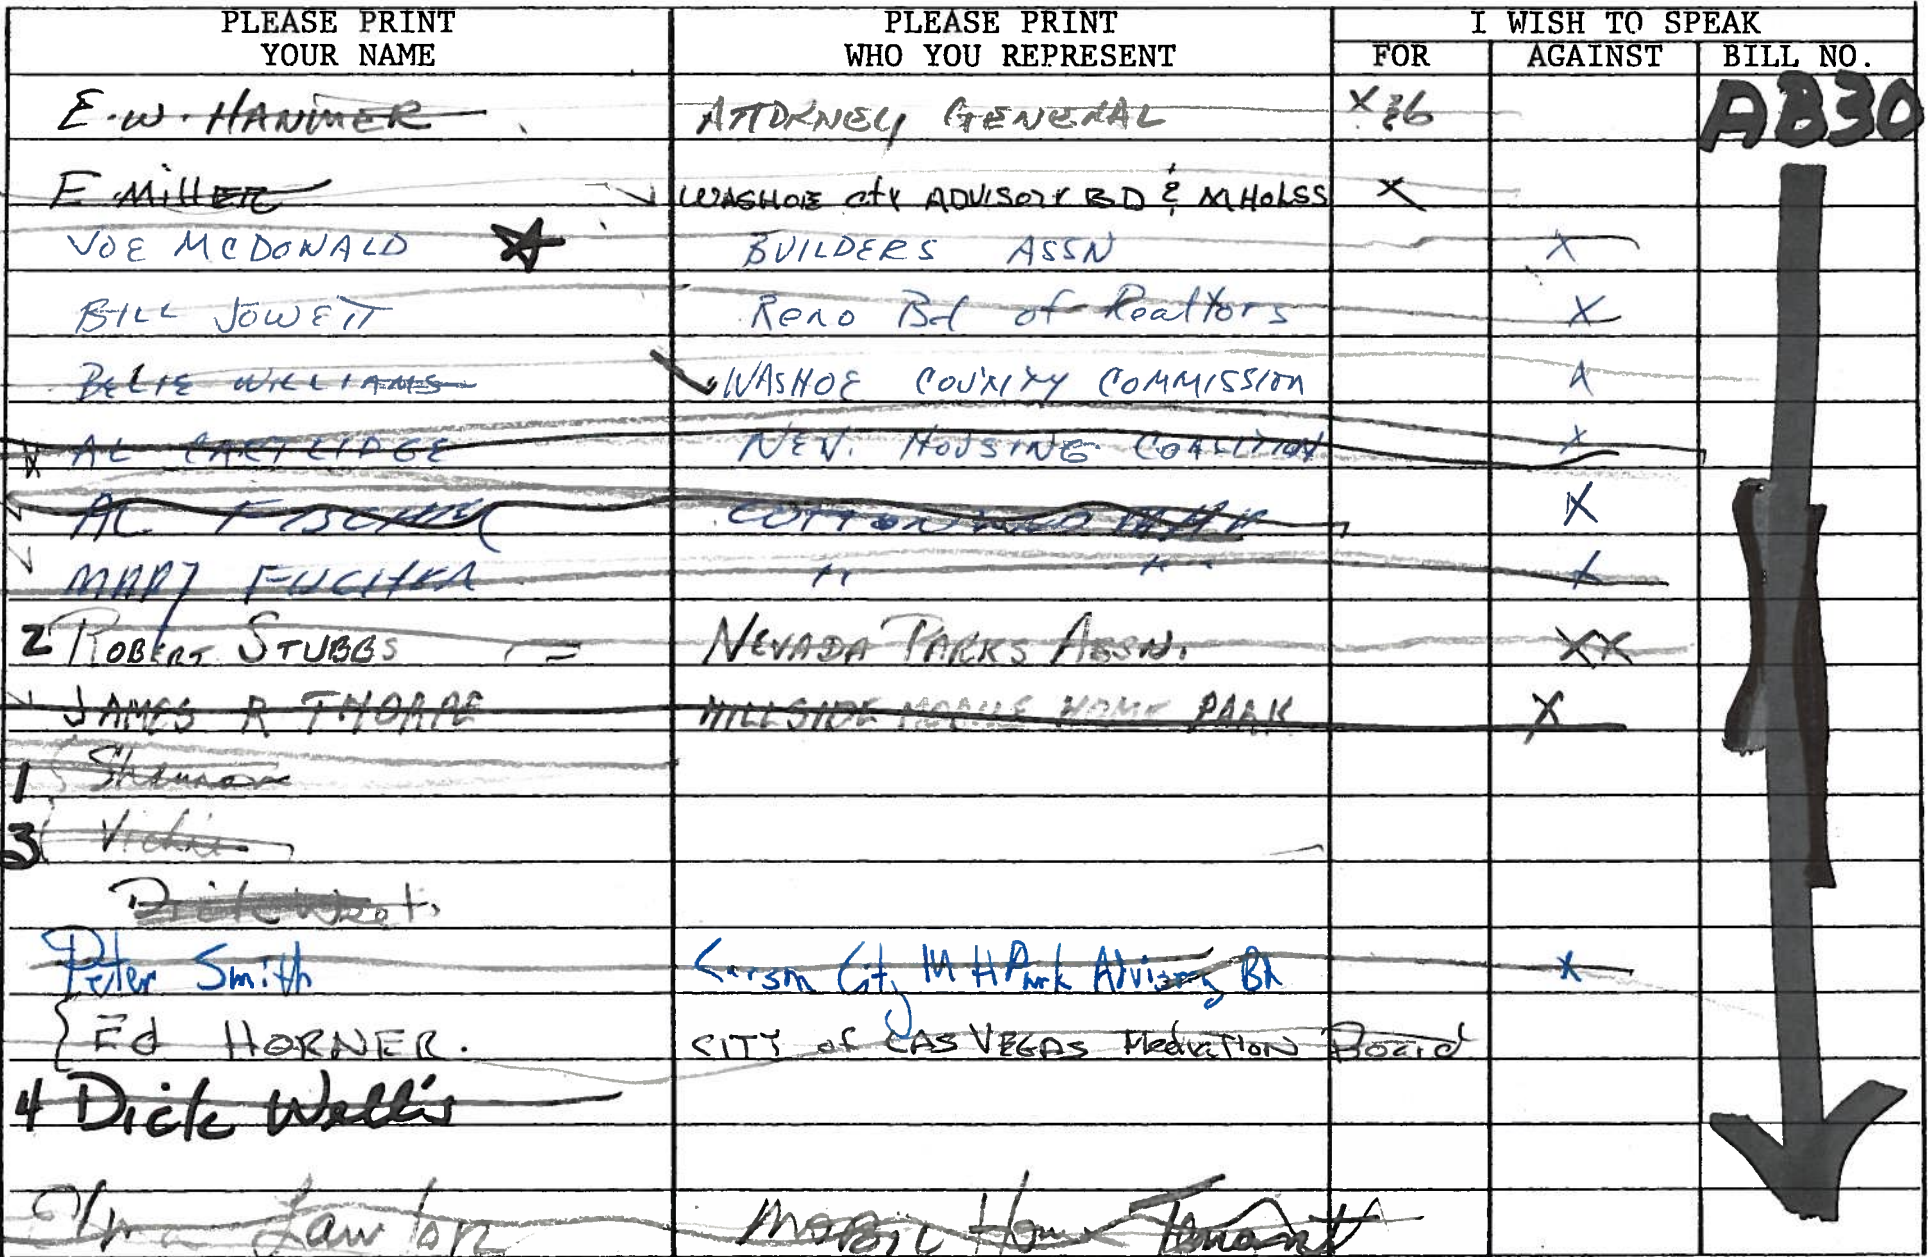 PLEASE PRINT YOUR NAME PLEASE PRINT WHO YOU REPRESENT I WISH TO SPEAK
FOR AGAINST BILL NO.
E.W. HANMER ATTORNEY GENERAL X AB30
F MillER WASHOE cty ADVISORY BD & MHOLSS X
JOE MCDONALD BUILDERS ASSN X
BILL JOWETT Reno Bd of Realtors X
BELIE WILLIAMS WASHOE COUNTY COMMISSION X
AL CARTLIDGE NEV. HOUSING COALITION X
AL FISCHER COTTONWOOD MHP X
MARY " " X
2 ROBERT STUBBS NEVADA PARKS ASSN. XX
JAMES R THORPE HILLSIDE MOBILE HOME PARK X
1
3 Vickie
Dick
Peter Smith Carson City M H Park Advisory Bd X
Ed HORNER. CITY of LAS VEGAS Mediation Board
4 Dick Wallis
Lawton Mobil Home Tenant